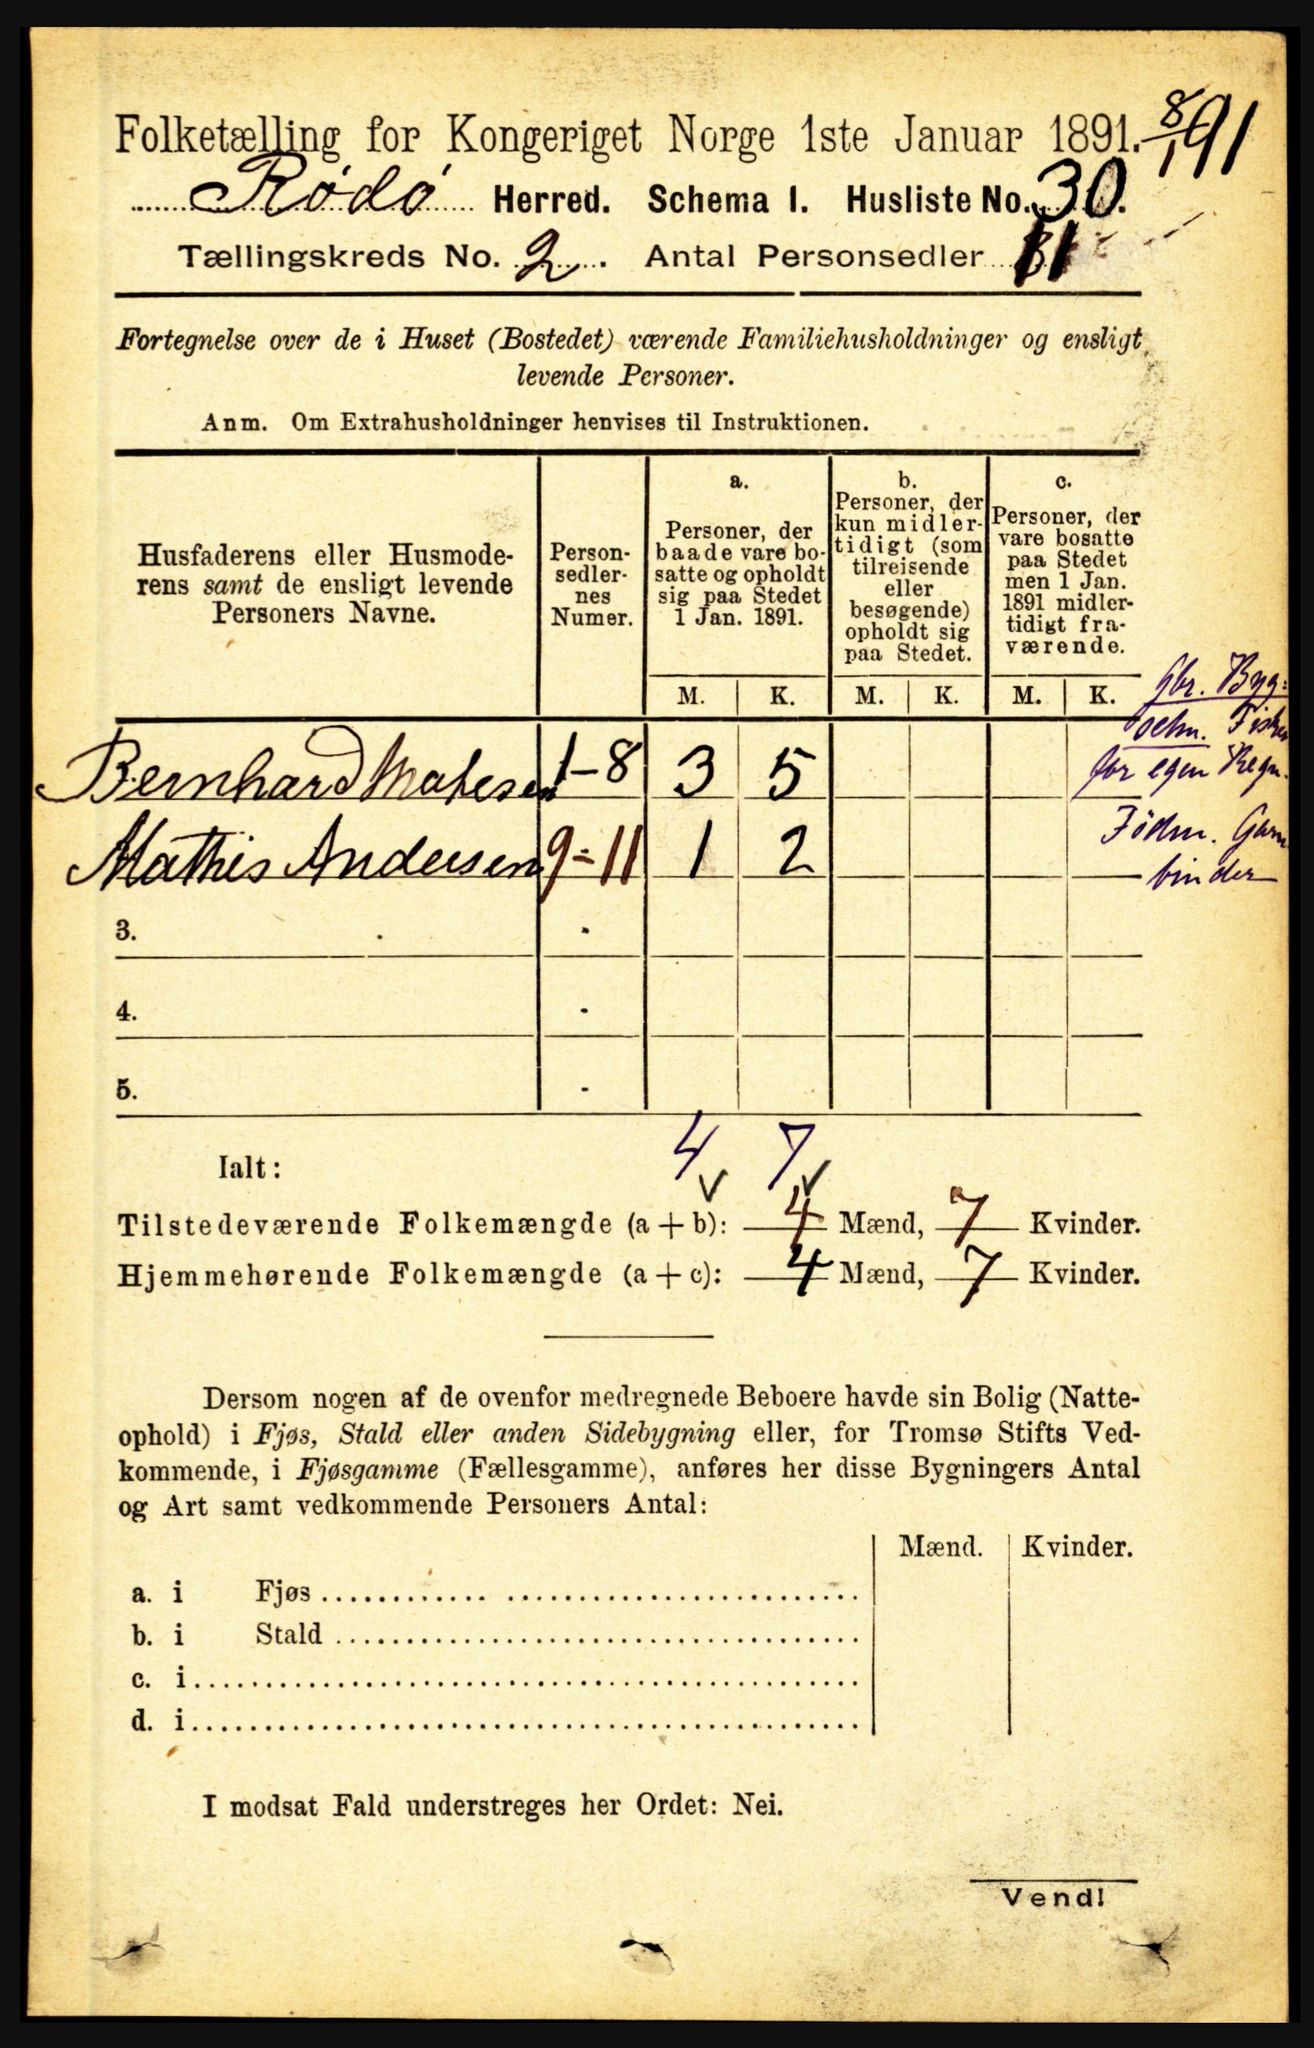 8/1 91
Folketælling for Kongeriget Norge 1ste Januar 1891.
Rødø Herred. Schema 1. Husliste No. 30.
Tællingskreds No. 2. Antal Personsedler 11
Fortegnelse over de i Huset (Bostedet) værende Familiehusholdninger og ensligt
levende Personer.
Anm. Om Extrahusholdninger henvises til Instruktionen.
Husfaderens eller Husmode-
rens samt de ensligt levende
Personers Navne.
Person-
sedler-
nes
Numer.
a.
Personer, der
baade vare bo-
satte og opholdt
sig paa Stedet
1 Jan. 1891.
b.
Personer, der
kun midler-
tidigt (som
tilreisende
eller
besøgende)
opholdt sig
paa Stedet.
c.
Personer, der
vare bosatte
paa Stedet
men 1 Jan.
1891 midler-
tidigt fra-
værende.
M. K. M. K. M. K.
Gbr. Byg-
selm. Fisker
for egen Regn.
Bernhard Mathesen 1-8 3 5
Födm. Garn
binder
Mathis Andersen 9-11 1 2
3. -
4. -
5. -
Ialt: 4 7
Tilstedeværende Folkemængde (a + b): 4 Mænd, 7 Kvinder.
Hjemmehørende Folkemængde (a + c): 4 Mænd, 7 Kvinder.
Dersom nogen af de ovenfor medregnede Beboere havde sin Bolig (Natte-
ophold) i Fjøs, Stald eller anden Sidebygning eller, for Tromsø Stifts Ved-
kommende, i Fjøsgamme (Fællesgamme), anføres her disse Bygningers Antal
og Art samt vedkommende Personers Antal:
Mænd. Kvinder.
a. i Fjøs
b. i Stald
c. i
d. i
I modsat Fald understreges her Ordet: Nei.
Vend!